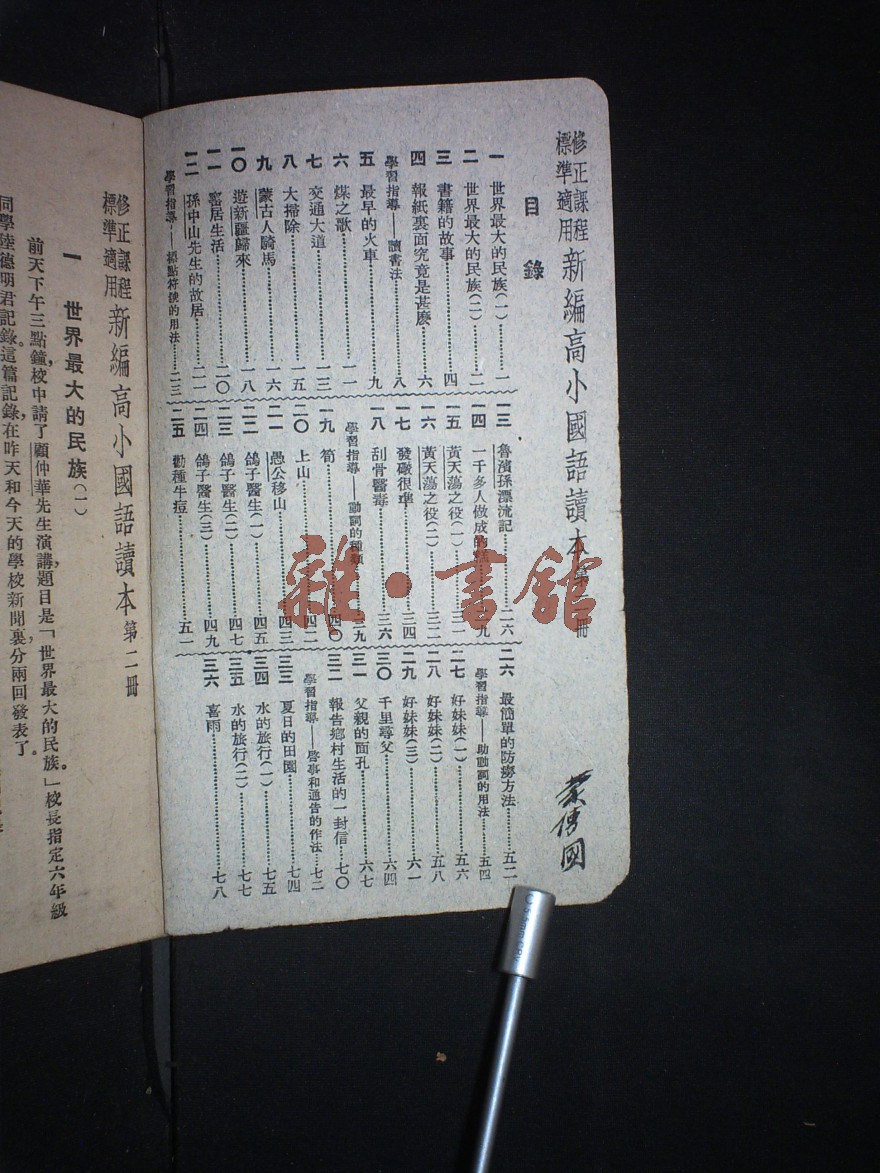 修正課程標準適用 新編高小國語讀本 第二冊
目錄
一 世界最大的民族(一)……一
二 世界最大的民族(二)……二
三 書籍的故事……四
四 報紙裏面究竟是甚麼……六
學習指導——讀書法……八
五 最早的火車……九
六 煤之歌……一一
七 交通大道……一三
八 大掃除……一五
九 蒙古人騎馬……一六
一〇 遊新疆歸來……一八
一一 窰居生活……二〇
一二 孫中山先生的故居……二一
學習指導——標點符號的用法……二三
一三 魯濱孫漂流記……二六
一四 一千多人做成的……九
一五 黃天蕩之役(一)……三一
一六 黃天蕩之役(二)……三二
一七 發礮很準……三四
一八 刮骨醫毒……三六
學習指導——動詞的種類……三九
一九 筍……四〇
二〇 上山……四二
二一 愚公移山……四三
二二 鴿子醫生(一)……四五
二三 鴿子醫生(二)……四七
二四 鴿子醫生(三)……四九
二五 勸種牛痘……五一
二六 最簡單的防癆方法……五二
學習指導——助動詞的用法……五四
二七 好妹妹(一)……五六
二八 好妹妹(二)……五八
二九 好妹妹(三)……六一
三〇 千里尋父……六四
三一 父親的面孔……六七
三二 報告鄉村生活的一封信……七〇
學習指導——啓事和通告的作法……七二
三三 夏日的田園……七四
三四 水的旅行(一)……七五
三五 水的旅行(二)……七七
三六 喜雨……七八
國
雜·書館
修正課程標準適用 新編高小國語讀本 第二冊
一 世界最大的民族(一)
前天下午三點鐘,校中請了顧仲華先生演講,題目是「世界最大的民族。」校長指定六年級
同學陸德明君記錄。這篇記錄,在昨天和今天的學校新聞裏,分兩回發表了。